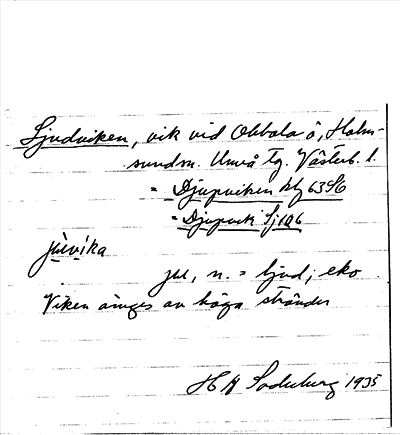 Ljudviken, vik vid Obbola ö, Holm-
sundsn. Umeå tg. Västerb. l.
= Djupviken kbl 63 SO
= Djupvik Sj 106
jʉ́vìka
jʉ, n. = ljud; eko
Viken omges av höga stränder
H A Söderberg 1935